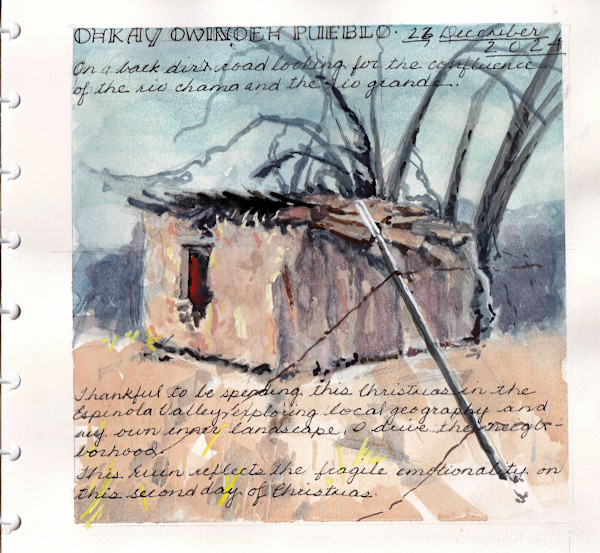 OHKAY OWINGEH PUEBLO. 26 December
2024
On a back dirt road looking for the confluence
of the rio chama and the rio grande.
Thankful to be spending this Christmas in the
Espinola Valley, exploring local geography and
my own inner landscape, I drive the neigh-
borhood.
This ruin reflects the fragile emotionality on
this second day of Christmas.